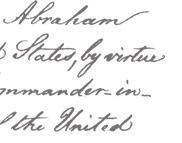 Abraham
States, by virtue
ommander-in-
the United